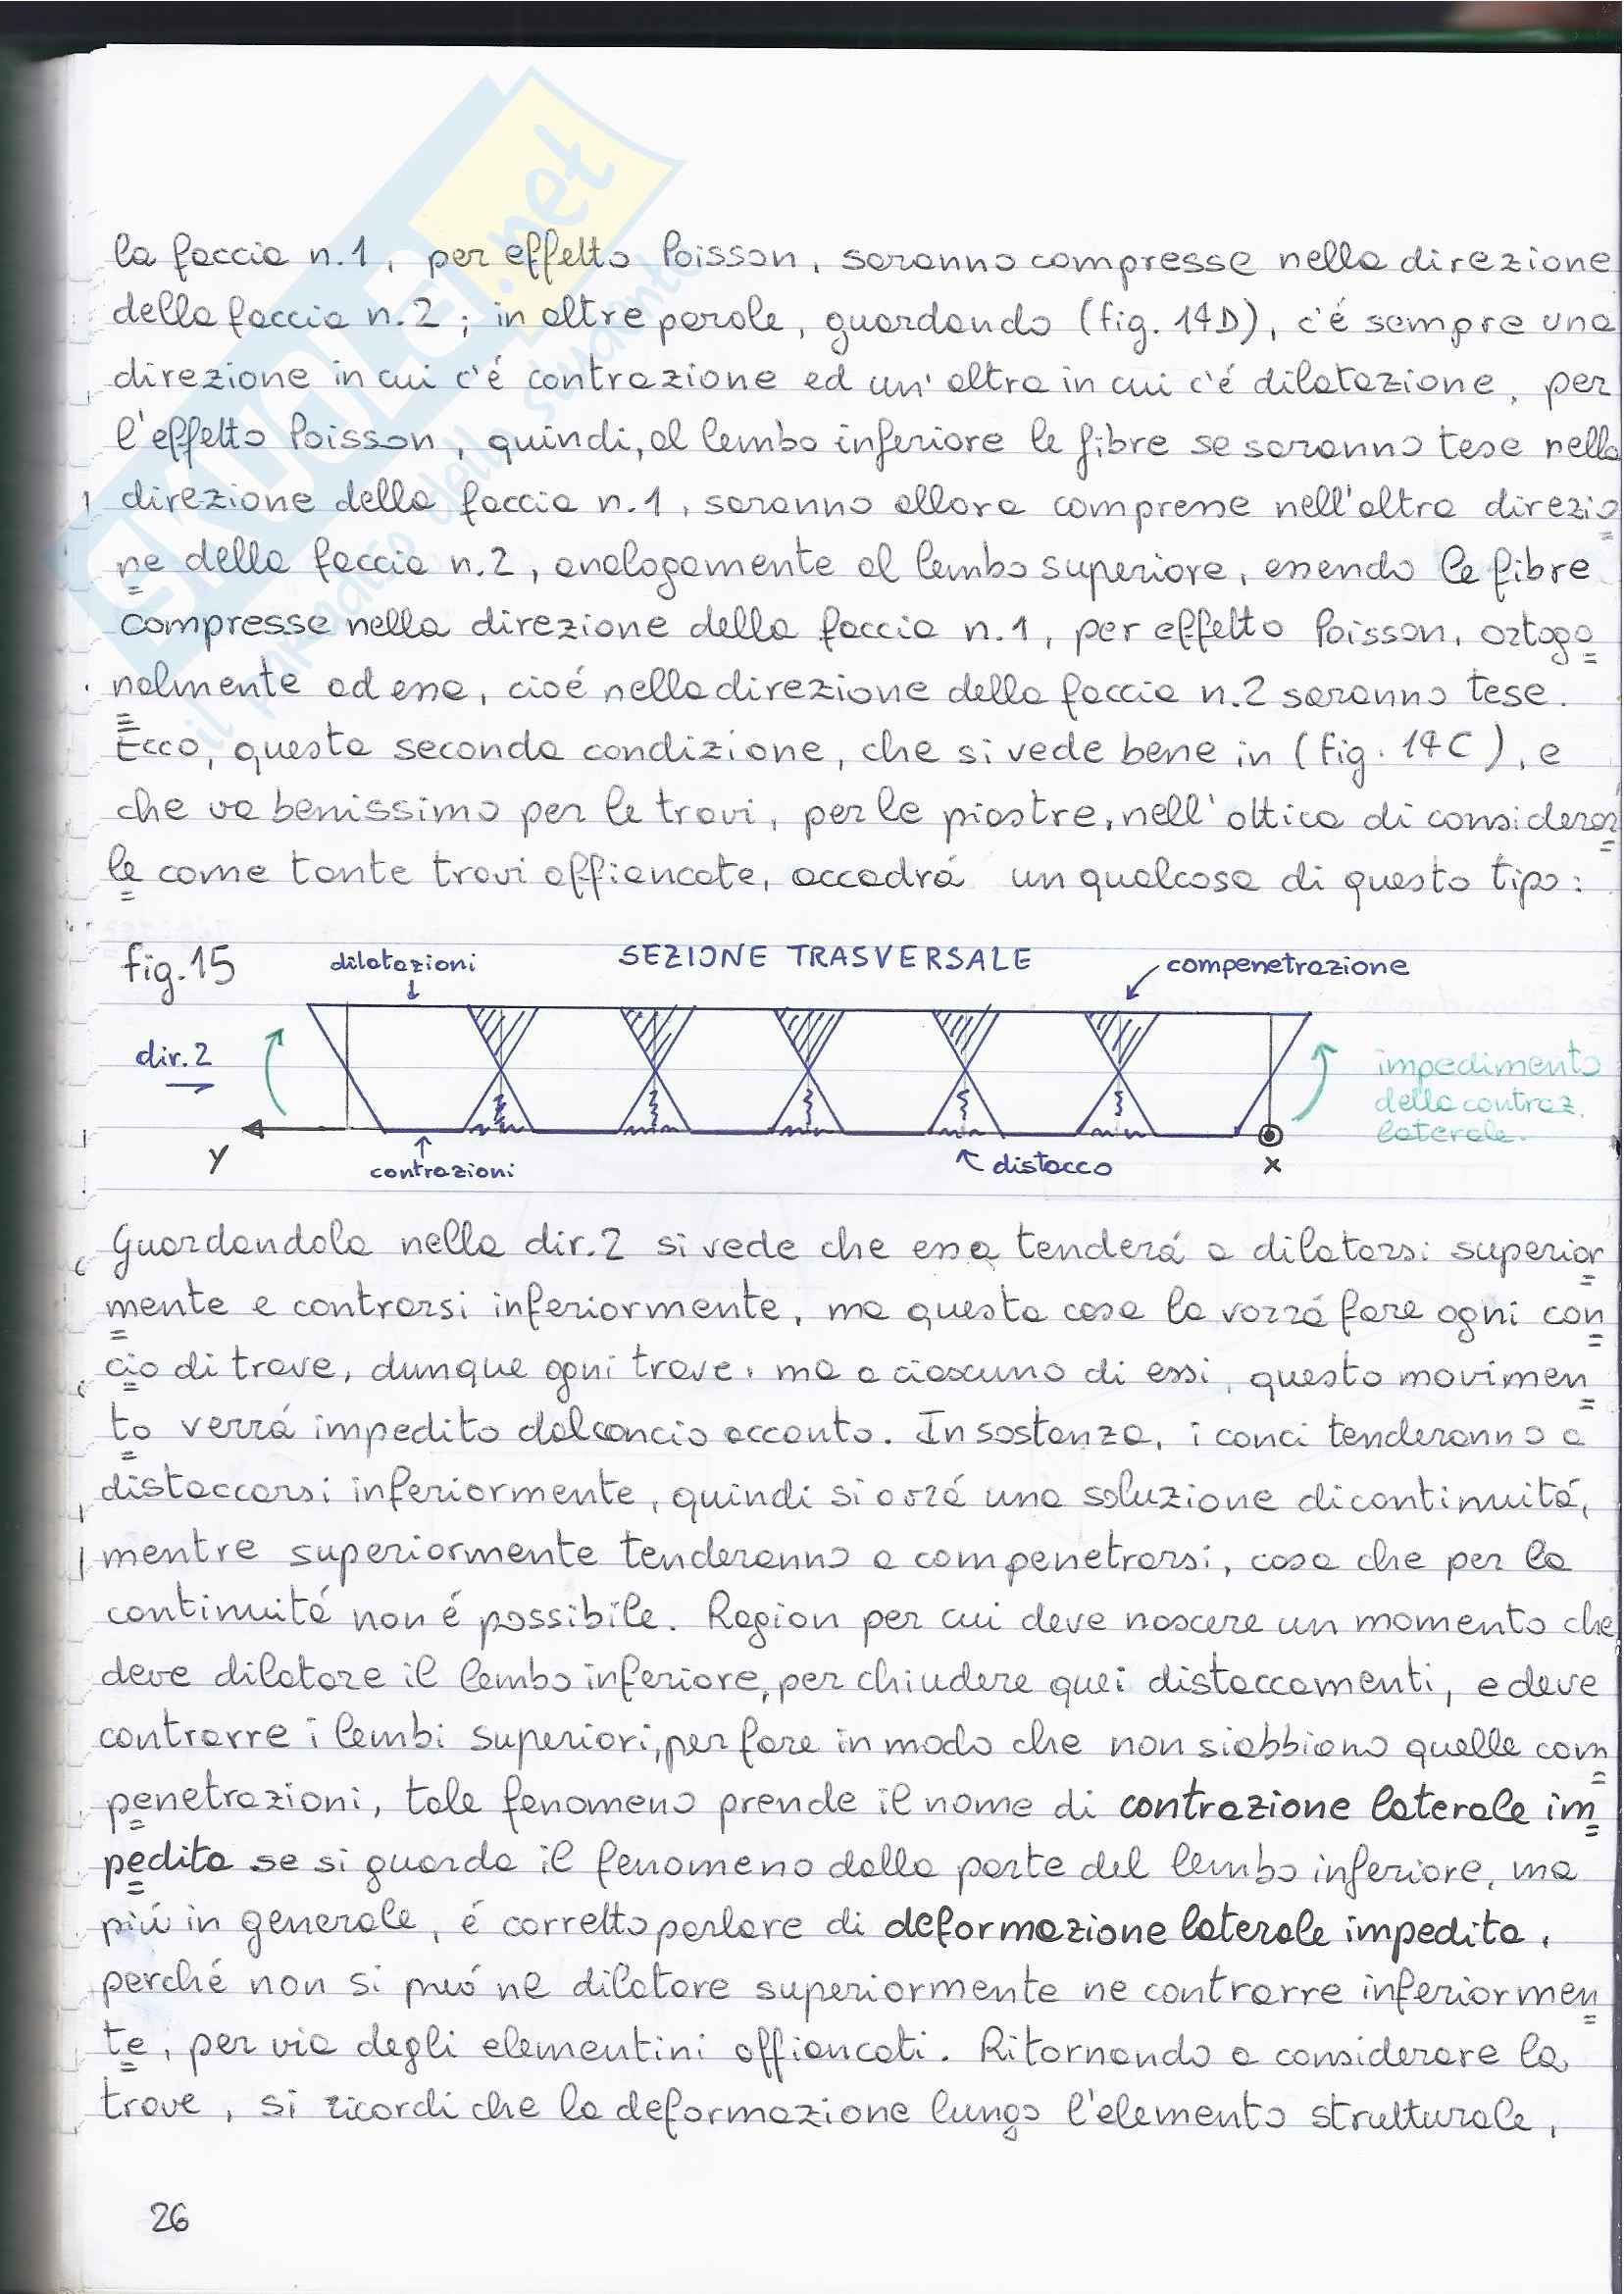 la faccia n.1, per effetto Poisson, saranno compresse nella direzione
della faccia n.2; in altre parole, guardando (fig. 14D), c'é sempre una
direzione in cui c'é contrazione ed un'altra in cui c'é dilatazione, per
l'effetto Poisson, quindi, al lembo inferiore le fibre se saranno tese nella
direzione della faccia n.1, saranno allora compresse nell'altra direzio
ne della faccia n.2, analogamente al lembo superiore, essendo le fibre
compresse nella direzione della faccia n.1, per effetto Poisson, ortogo
nalmente ad essa, cioé nella direzione della faccia n.2 saranno tese.
Ecco, questa seconda condizione, che si vede bene in (fig. 14C), e
che va benissimo per le travi, per le piastre, nell'ottica di considerar
le come tante travi affiancate, accadrá un qualcosa di questo tipo:
fig.15
dilatazioni
SEZIONE TRASVERSALE
compenetrazione
dir.2
impedimento
della contraz.
laterale.
y
contrazioni
distacco
x
Guardandola nella dir.2 si vede che essa tenderá a dilatarsi superior
mente e contrarsi inferiormente, ma questa cosa la vorrá fare ogni con
cio di trave, dunque ogni trave, ma a ciascuno di essi, questo movimen
to verrá impedito dal concio accanto. In sostanza, i conci tenderanno a
distaccarsi inferiormente, quindi si avrá una soluzione di continuitá,
mentre superiormente tenderanno a compenetrarsi, cosa che per la
continuitá non é possibile. Ragion per cui deve nascere un momento che
deve dilatare il lembo inferiore, per chiudere quei distaccamenti, e deve
contrarre i lembi superiori, per fare in modo che non si abbiano quelle com
penetrazioni, tale fenomeno prende il nome di contrazione laterale im
pedita se si guarda il fenomeno dalla parte del lembo inferiore, ma
piú in generale, é corretto parlare di deformazione laterale impedita,
perché non si puó ne dilatare superiormente ne contrarre inferiormen
te, per via degli elementini affiancati. Ritornando a considerare la
trave, si ricordi che la deformazione lungo l'elemento strutturale,
26